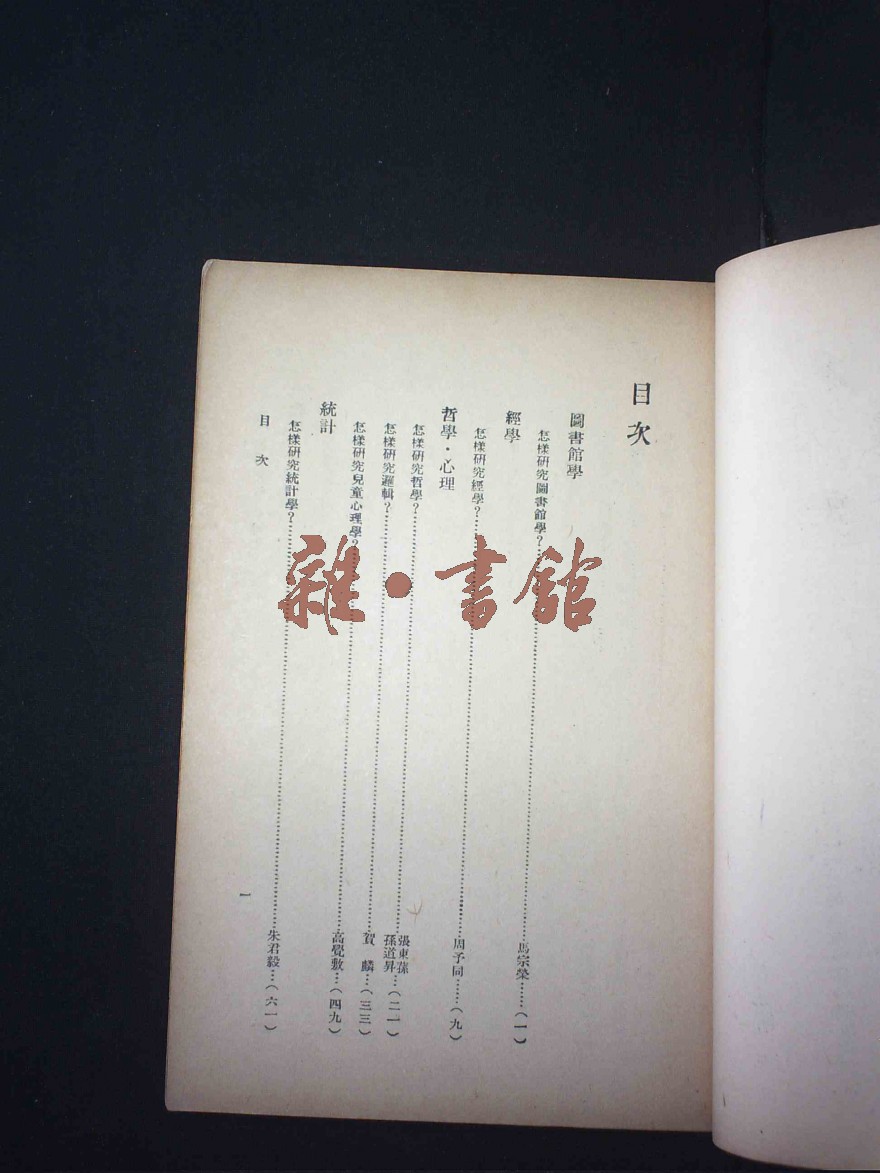 目次
圖書館學
怎樣研究圖書館學？……馬宗榮……（一）
經學
怎樣研究經學？……周予同……（九）
哲學・心理
怎樣研究哲學？……張東蓀 孫道昇……（二一）
怎樣研究邏輯？……賀麟……（三三）
怎樣研究兒童心理學？……高覺敷……（四九）
統計
怎樣研究統計學？……朱君毅……（六一）
目次
一
雜・書館